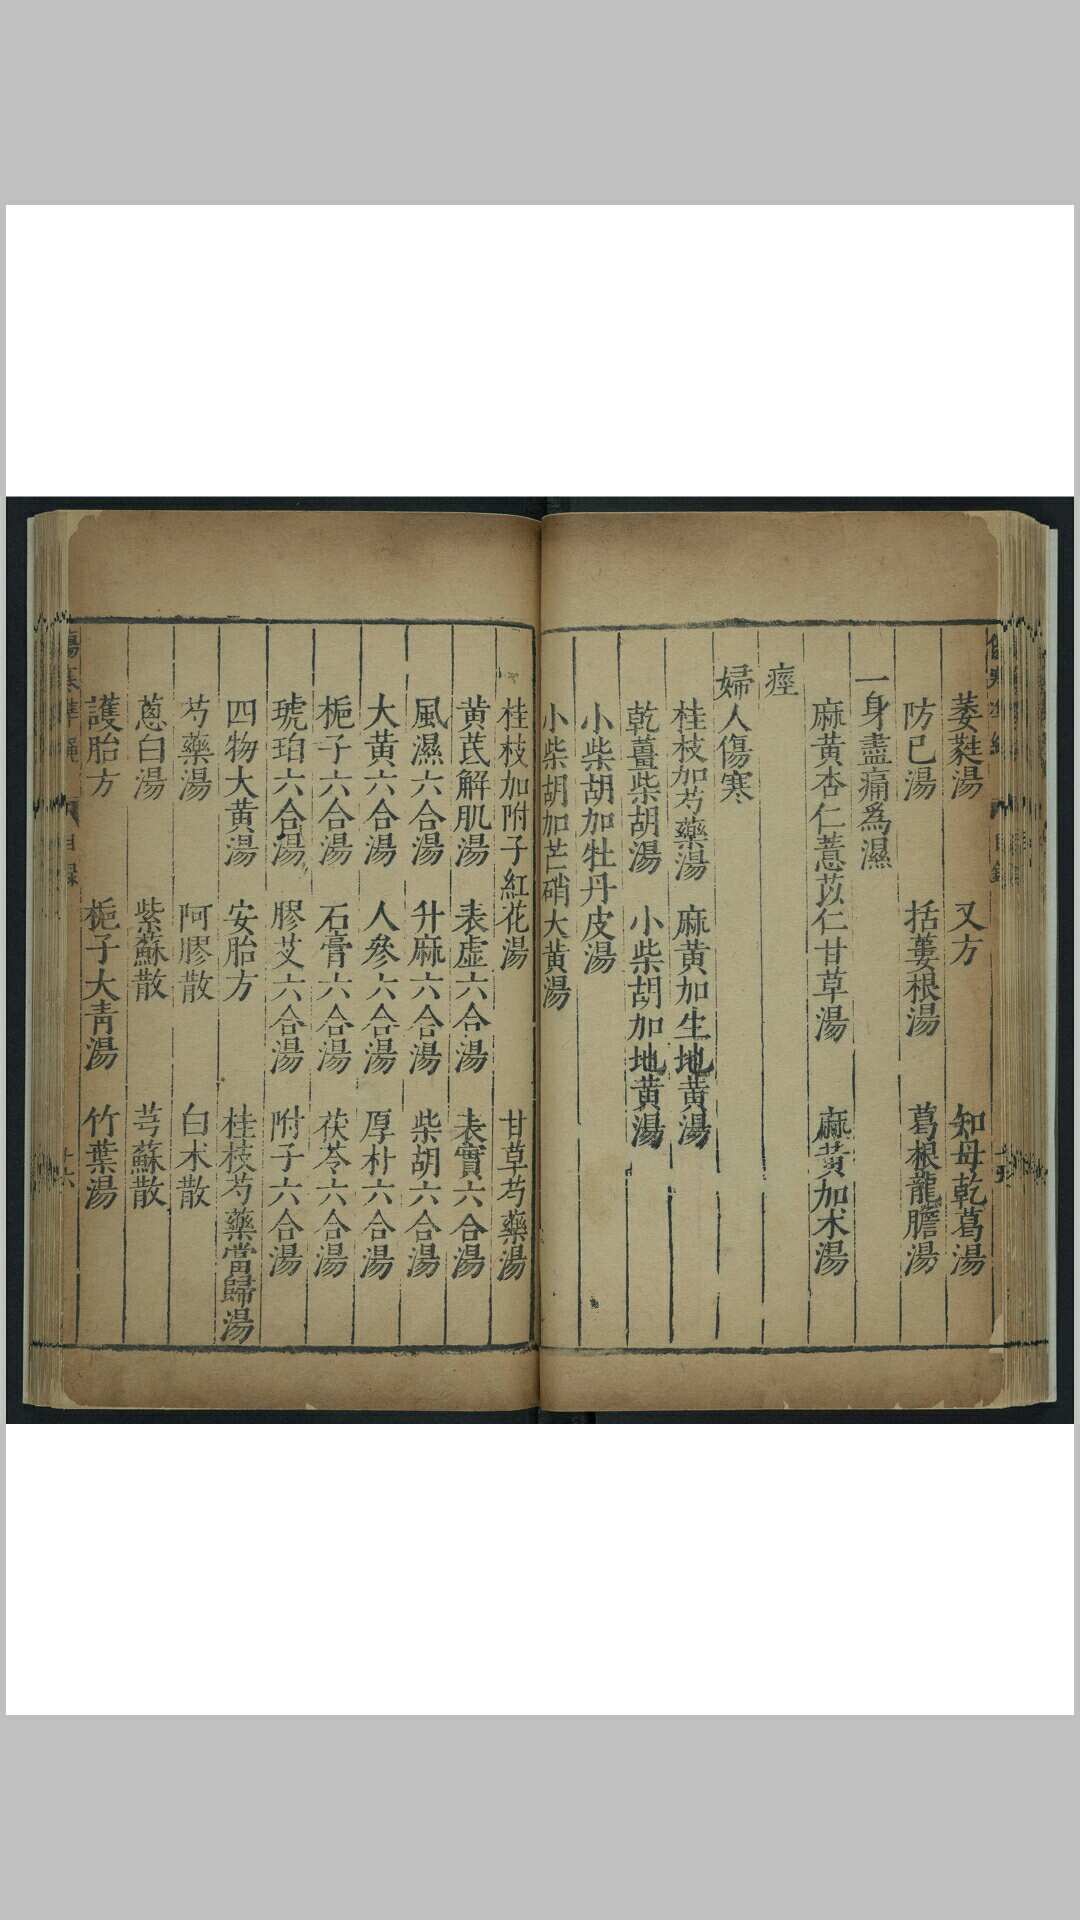 萎蕤湯　又方　知母乾葛湯
防已湯　括蔞根湯　葛根龍膽湯
一身盡痛爲濕
麻黃杏仁薏苡仁甘草湯　麻黃加术湯
痙
婦人傷寒
桂枝加芍藥湯　麻黃加生地黃湯
乾薑柴胡湯　小柴胡加地黃湯
小柴胡加牡丹皮湯
小柴胡加芒硝大黃湯
桂枝加附子紅花湯　甘草芍藥湯
黃芪解肌湯　表虛六合湯　表實六合湯
風濕六合湯　升麻六合湯　柴胡六合湯
大黃六合湯　人參六合湯　厚朴六合湯
梔子六合湯　石膏六合湯　茯苓六合湯
琥珀六合湯　膠艾六合湯　附子六合湯
四物大黃湯　安胎方　桂枝芍藥當歸湯
芍藥湯　阿膠散　白朮散
蔥白湯　紫蘇散　芎蘇散
護胎方　梔子大青湯　竹葉湯
傷寒準繩　目錄　十六